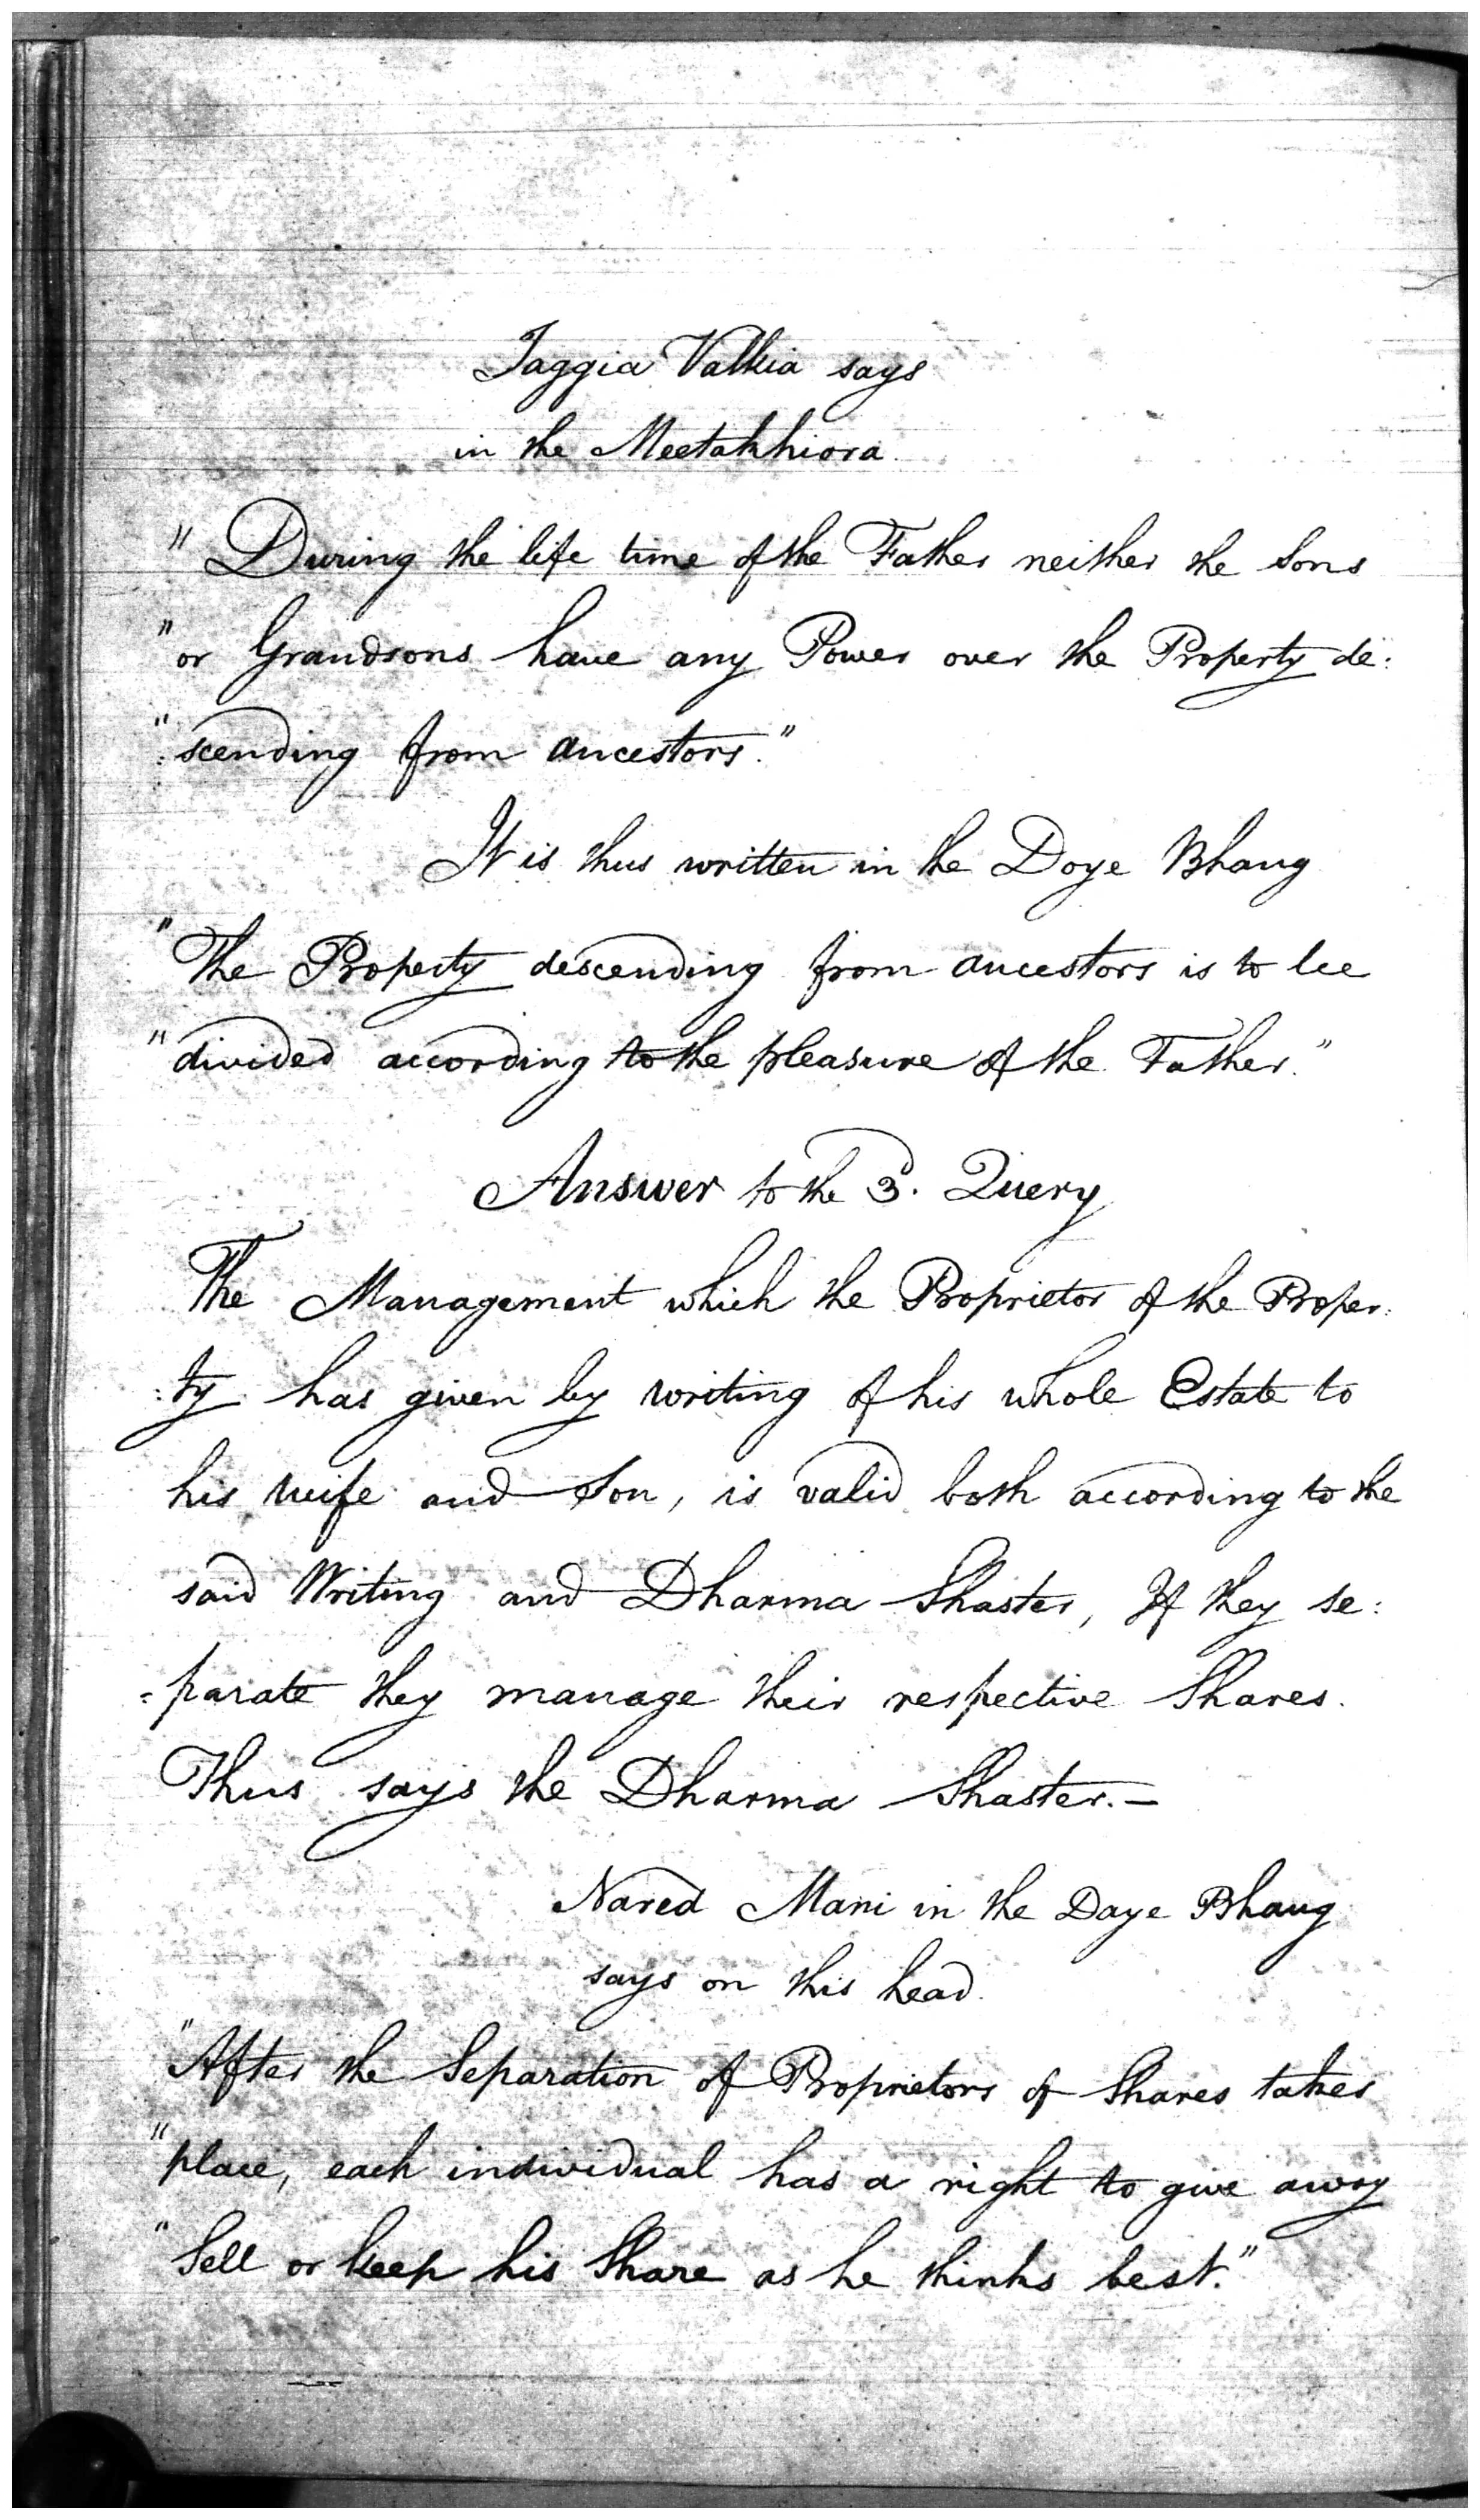 Jaggia Valkia says
in the Meetakhiora
" During the life time of the Father neither the Sons
" or Grandsons have any Power over the Property de:
" :scending from ancestors."
It is thus written in the Doye Bhaug
" The Property descending from ancestors is to be
" divided according to the pleasure of the Father."
Answer to the 3d. Query
The Management which the Proprietor of the Proper:
:ty has given by writing of his whole Estate to
his wife and Son, is valid both according to the
said Writing and Dharma Shaster, If they se:
:parate they manage their respective Shares.
Thus says the Dharma Shaster.—
Nared Mani in the Daye Bhaug
says on this head.
" After the Separation of Proprietors of Shares takes
" place, each individual has a right to give away
" Sell or keep his Share as he thinks best."